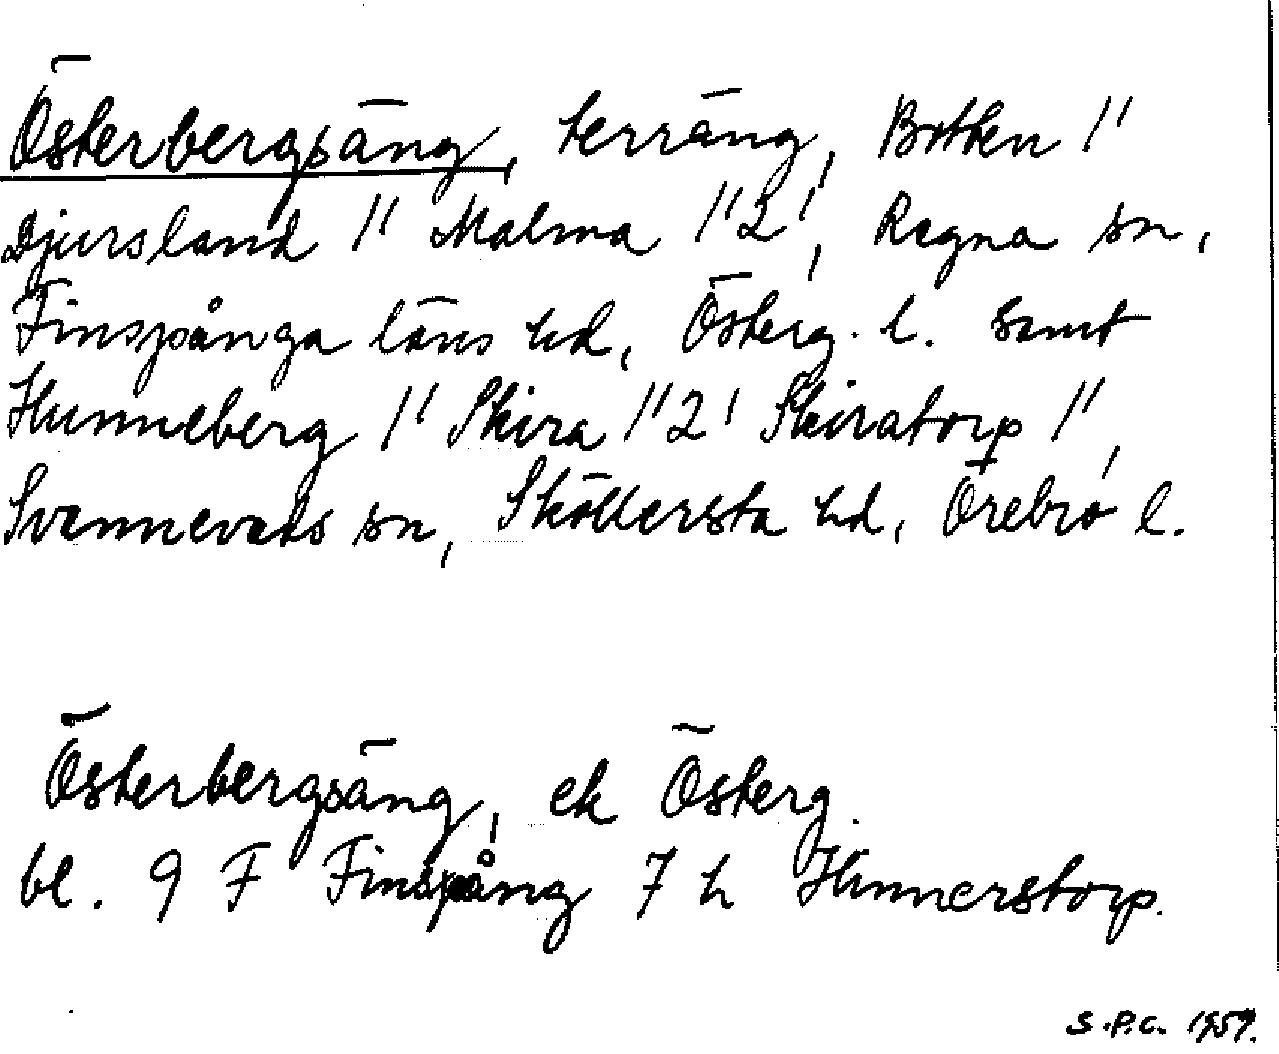 Österbergsäng, terräng, Botten 1/1
Djursland 1/1 Malma 1/1 2/, Regna sn,
Finspånga läns hd, Österg. l. samt
Hunneberg 1/1 Skira 1/1 2/ Skiratorp 1/1,
Svennevads sn, Sköllersta hd, Örebro l.
Österbergsäng, ek Österg.
bl. 9 F Finspång 7 h Hunnerstorp.
S.P.C. 1959.